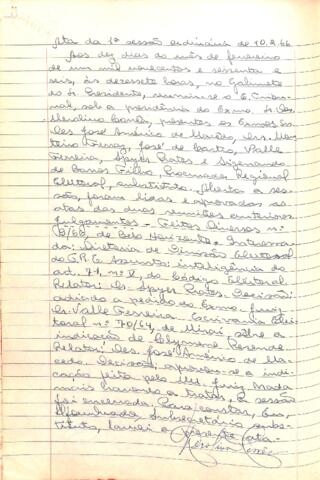 Ata da 1ª sessão ordinária de 10.2.66
Aos dez dias do mês de fevereiro
de um mil novecentos e sessenta e
seis, às dezessete horas, no Gabinete
do Sr. Presidente, reuniu-se o E. Tribu-
nal, sob a presidência do Exmo. Sr. Des.
presentes os Exmos. Srs.
Des. José Américo de Macêdo, Drs.
José de Castro, Valle
Ferreira, Spyer Prates e Sizenando
de Barros Filho, Procurador Regional
Eleitoral, substituto. Aberta a ses-
são, foram lidas e aprovadas as
atas das duas reuniões anteriores.
Julgamentos - Feitos Diversos nº
de Belo Horizonte. Interessa-
da: Diretoria de Divisão Eleitoral
do T.R.E. Assunto: inteligência do
art. 71, nº V, do Código Eleitoral.
Relator: Dr. Spyer Prates. Decisão:
adiado a pedido do Exmo. Juiz
Dr. Valle Ferreira. Escrivania Elei-
toral nº 70/64, de Miraí sôbre a
indicação de Resende.
Relator: Des. José Américo de Ma-
cedo. Decisão: aprovou-se a indi-
cação feita pelo MM. Juiz. Nada
mais havendo a tratar, a sessão
foi encerrada. Para constar, Eu,
Subsecretária substi-
tuta, lavrei a presente ata.